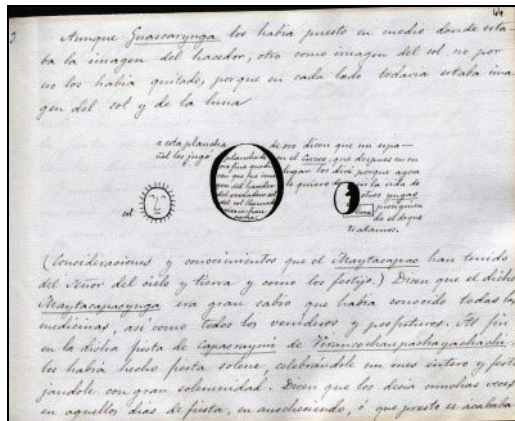 44
Aunque Guascarynga los habia puesto en medio donde esta-
ba la imagen del hacedor, otro como imagen del sol no por
eso los habia quitado, porque en cada lado todavia estaba ima
gen del sol y de la luna
a esta plancha de oro dicen que un espa-
ñol los jugó en el Cuzco, que despues en su
lugar los diré porque agora
le quiero la vida de
otros yngas
plancha de
oro fino
que
imagen del hacedor
del verdadero sol
del sol llamado
sol
luna
tratamos.
(Consideraciones y conocimientos que el Maytacapac han tenido
del Señor del cielo y tierra y como los festijo.) Dicen que el dicho
Maytacapacynga era gran sabio que habia conocido todas las
medicinas, así como todos los venideros y posfuturos. Al fin
en la dicha fiesta de Capacraymi de Viracochanpachayachachi,
los habia hecho fiesta solene, celebrándole un mes entero y feste
jandole con gran solemnidad. Dicen que los decia muchas veces
en aquellos dias de fiesta, en anocheciendo, ó que presto se acababa